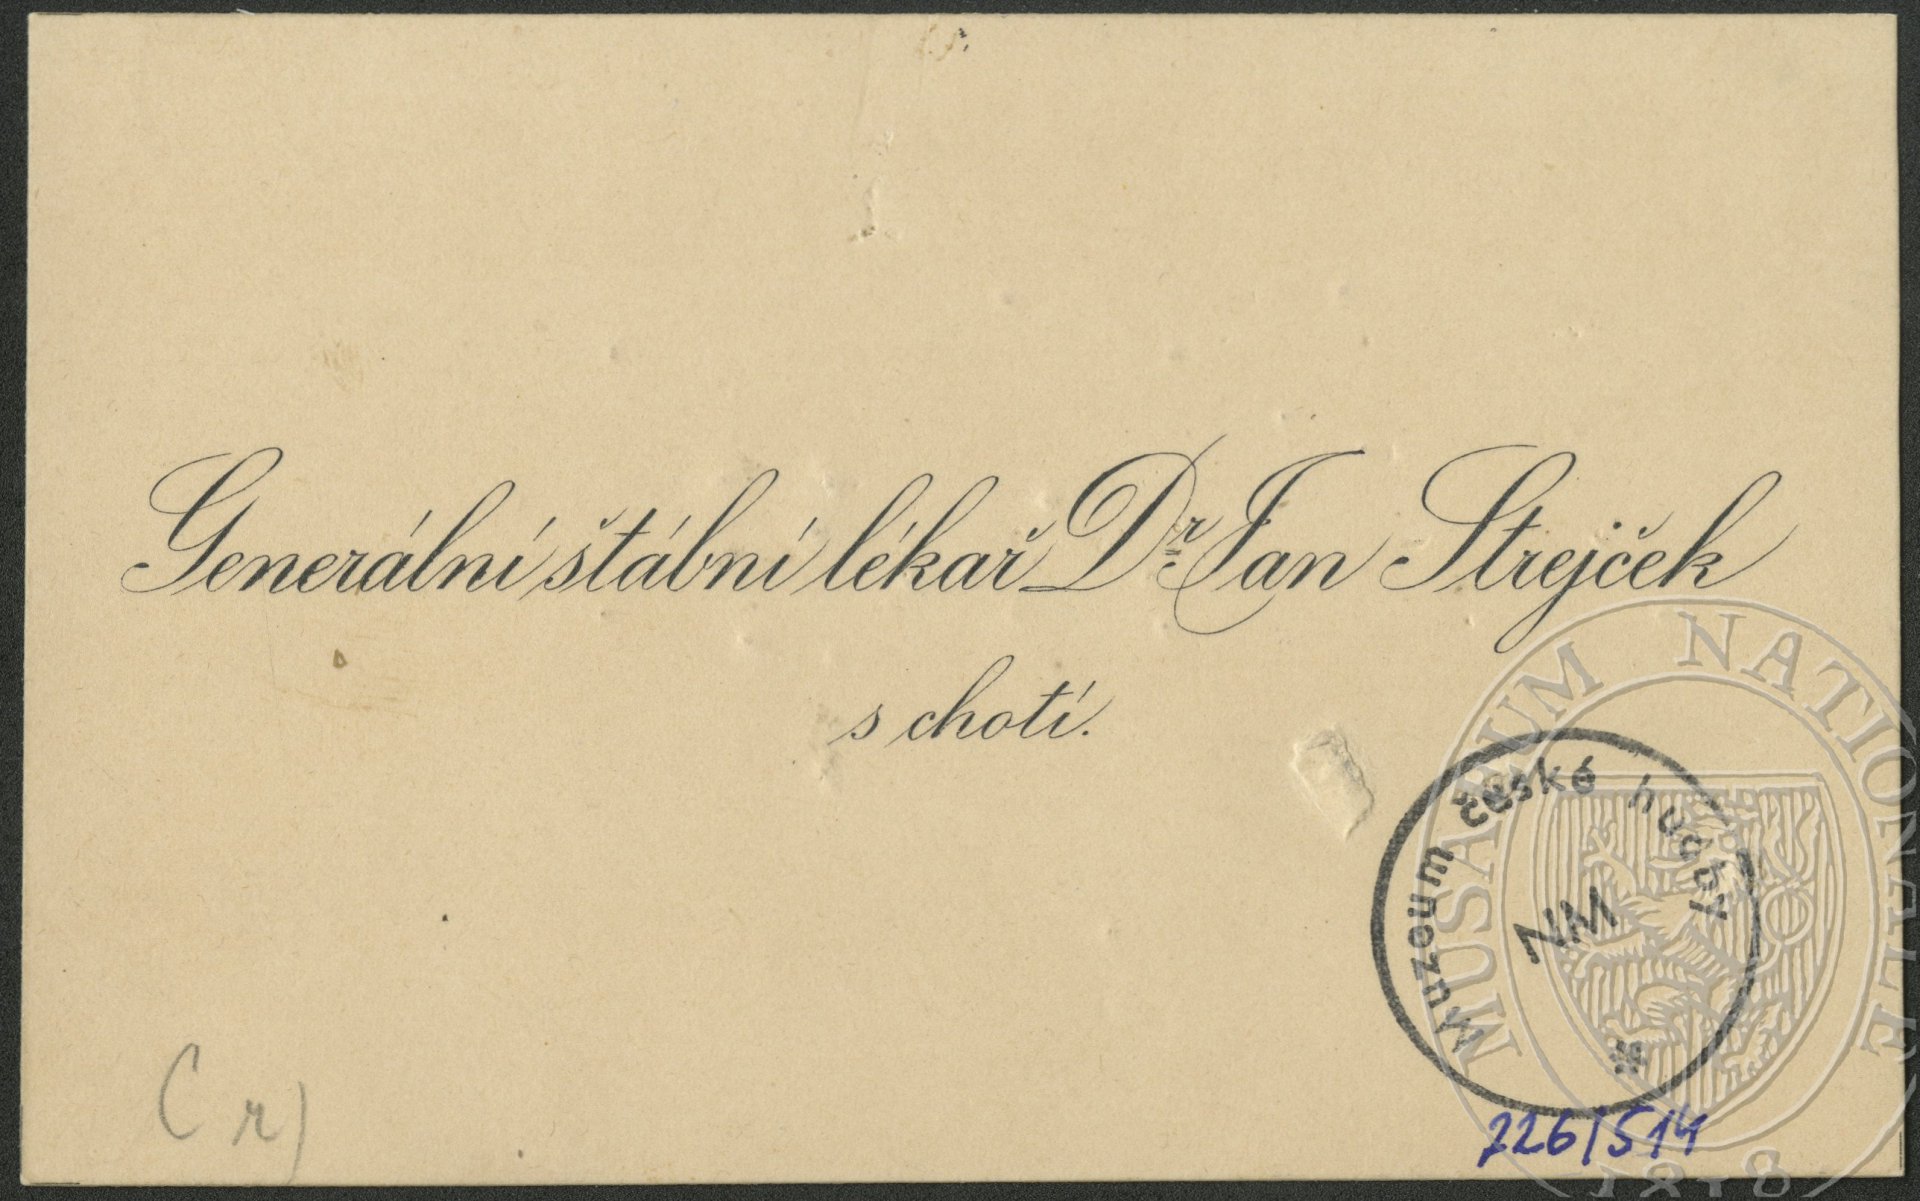 Generální štábní lékař Dr. Jan Strejček
s chotí.
Muzeum české hudby
NM
C r)
226/514
MUSAEUM NATIONALE
1818